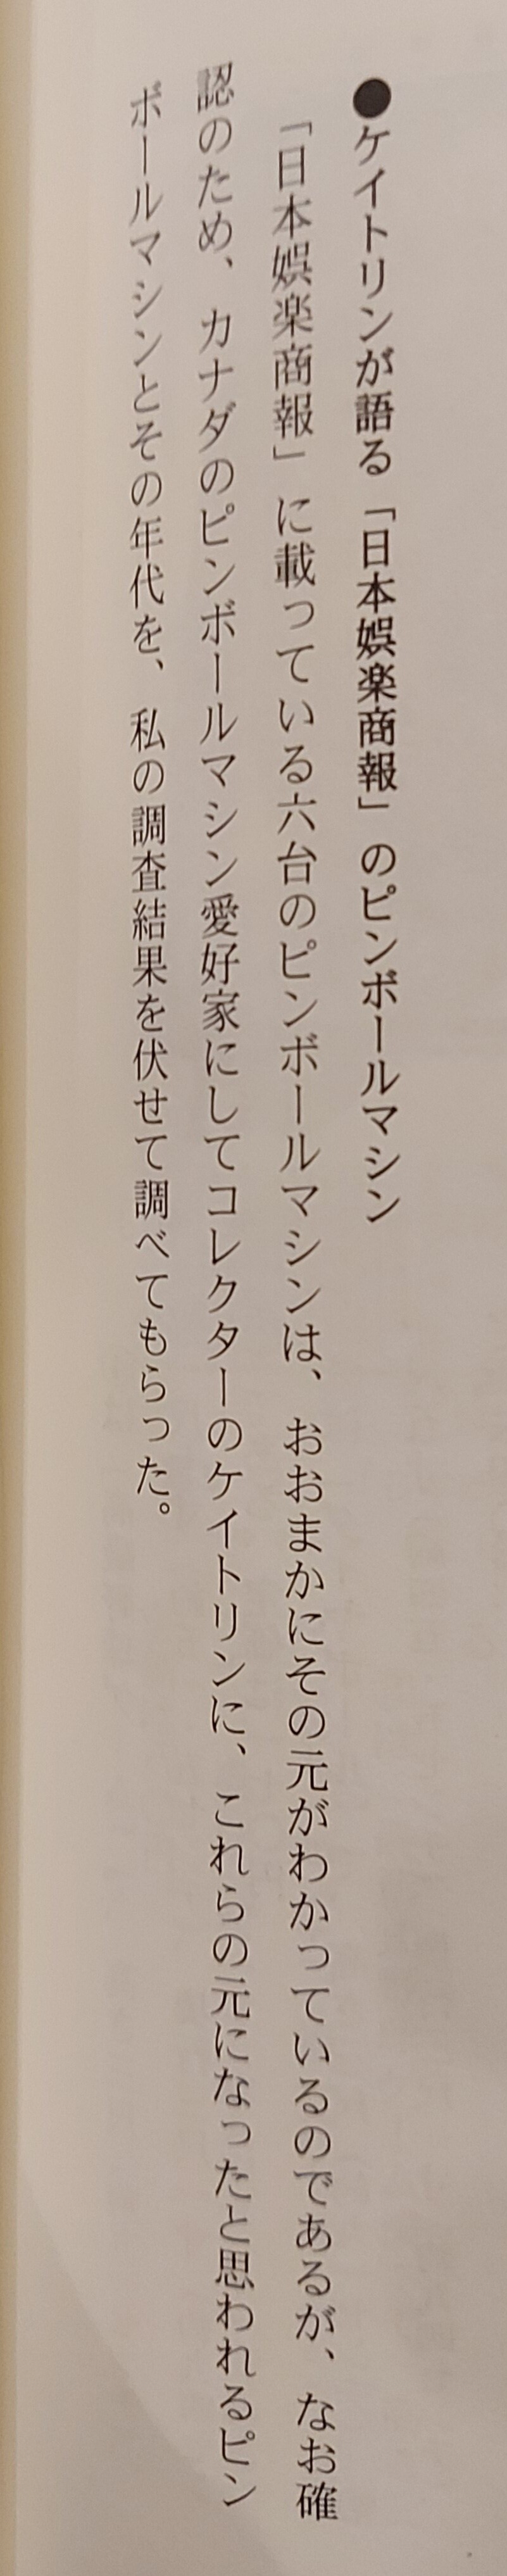 ●ケイトリンが語る「日本娯楽商報」のピンボールマシン
「日本娯楽商報」に載っている六台のピンボールマシンは、おおまかにその元がわかっているのであるが、なお確
認のため、カナダのピンボールマシン愛好家にしてコレクターのケイトリンに、これらの元になったと思われるピン
ボールマシンとその年代を、私の調査結果を伏せて調べてもらった。